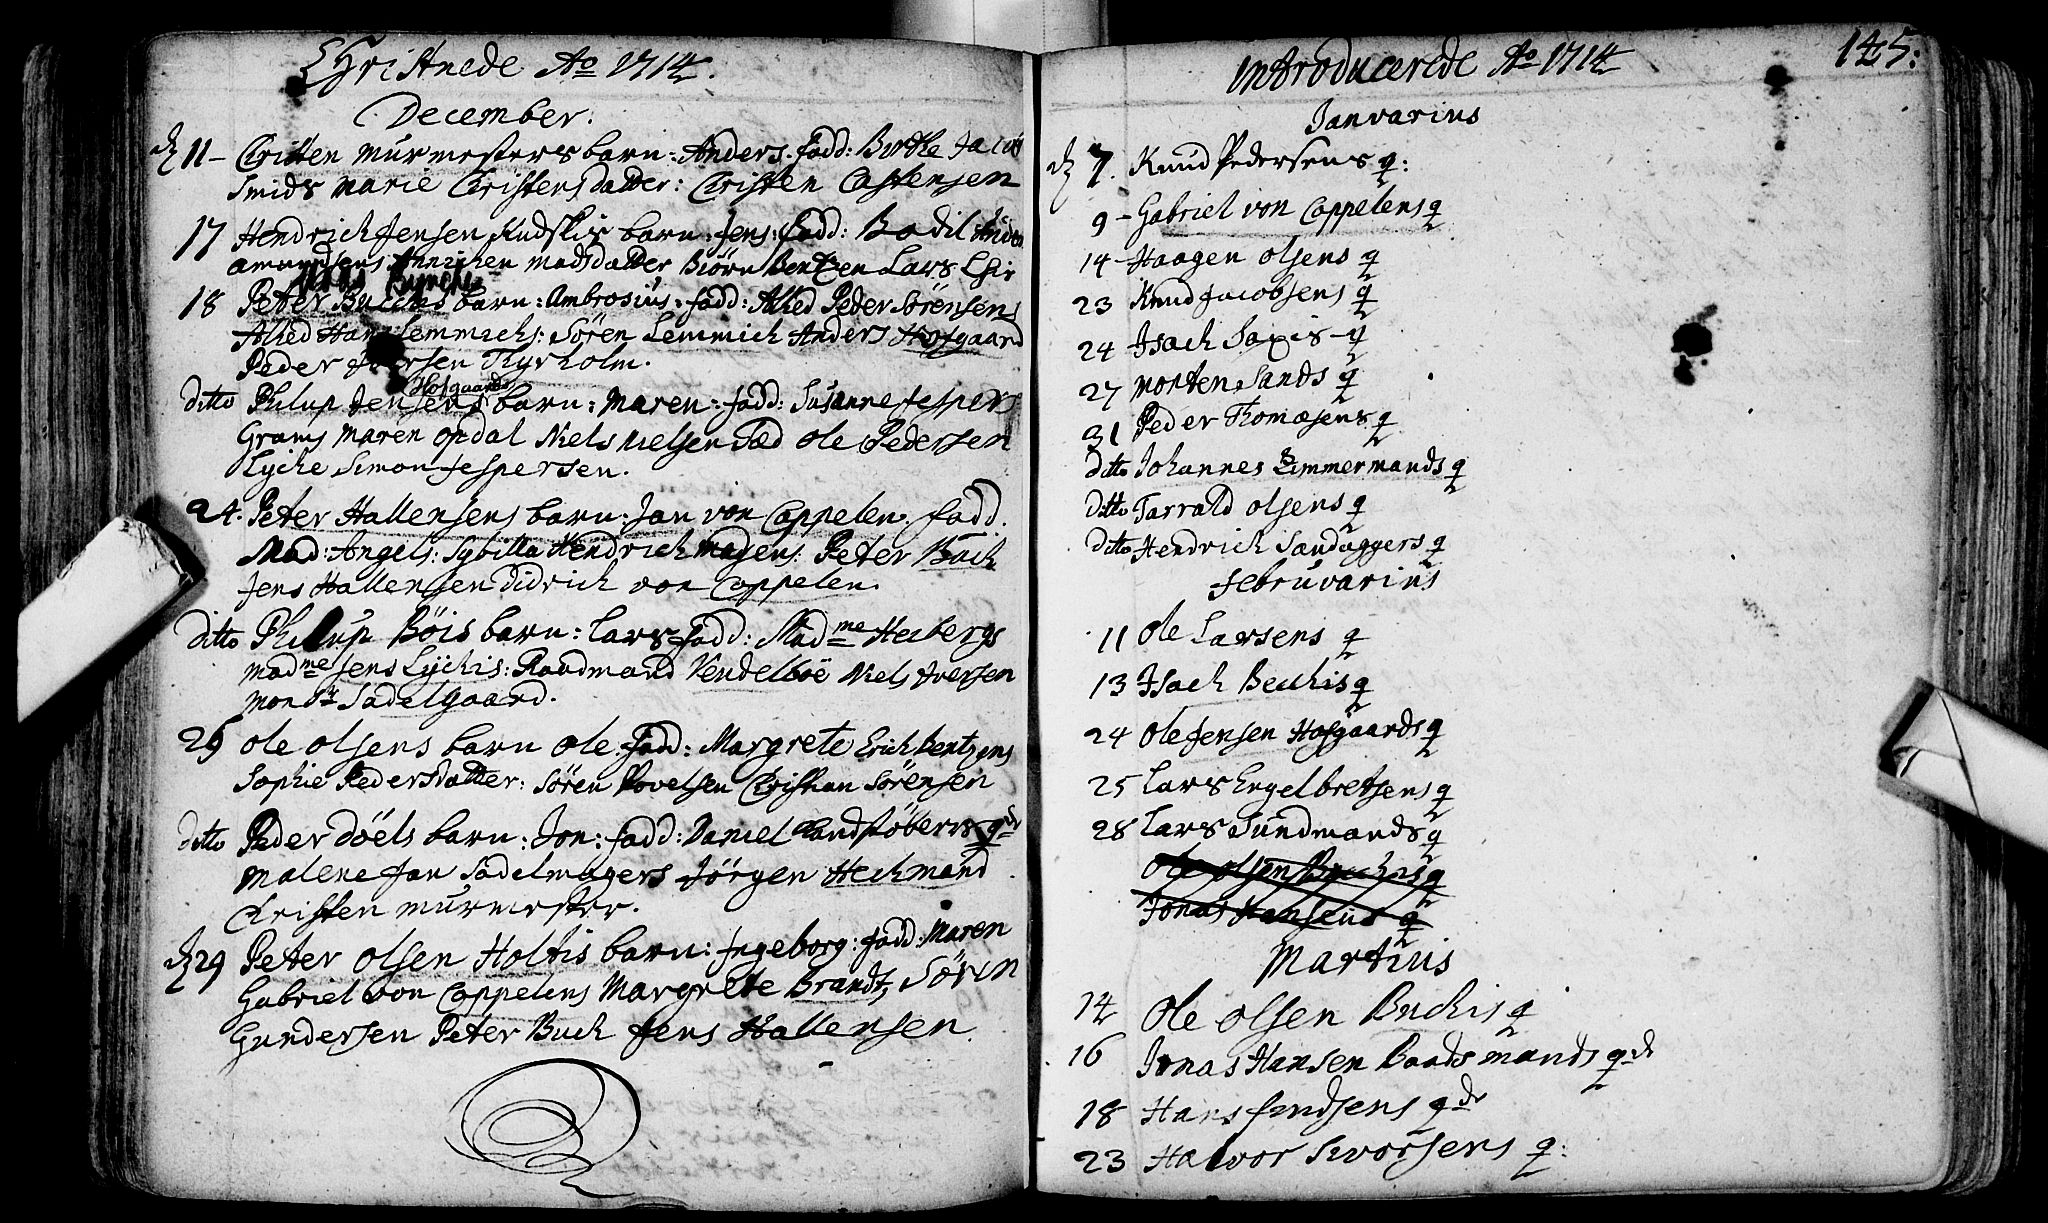 Christnede Ao 1714.
December.
d 11 - Christen Murmesters barn: Anders. fadd: Birthe Jacob
Smids Marie Christensdatter: Christen Castensen
17 Hendrich Jensen Rudskis barn: Jens: fadd: Bodil
Amundsens Annichen Madsdatter Biørn Bentzen Lars
18 Peter barn: Ambrosius: fadd: Alhed Peder Sørensens
Alhed Hans Lemmichs: Søren Lemmich Anders Hofgaard
Peder Iversen Thyrholm.
Hofgaards
ditto Philup Jensens barn: Maren: fadd: Susanne Jespers
Grams Maren Opdal Niels Nielsen Tød Ole Pedersen
Lyche Simon Jespersen.
24. Peter Hallensens barn: Jan von Cappelen. fadd.
Mad: Angels: Sybilla Hendrich Magens: Peter Buch
Jens Hallensen Didrich von Cappelen.
ditto Philup Böis barn: Lars: fadd: Madme Herbergs
Madme Jens Lychis: Raadmand Vendelboe Niels Iversen
Monsr Sadelgaard.
26 Ole Olsens barn Ole. fadd: Margrete Erich Bentzens
Sophie Pedersdatter: Sören Povelsen Christian Sørensen
ditto Peder Döels barn: Jon: fadd: Daniel qde
Malene Jan Sadelmagers Jörgen Hechmand
Christen Murmester.
d 29 Peter Olsen Holtis barn: Ingeborg: fadd: Maren
Gabriel von Cappelens Margrete Brandt, Sören
Gundersen Peter Buch Jens Hallensen.
Introducerede Ao 1714
145:
Ianvarius
d 7. Knud Pedersens q:
9 - Gabriel von Cappelens q
14 - Haagen Olsens q
23 Knud Jacobsens q
24 Isach Saxis - q
27 Morten Sands q
31 Peder Thomæsens q
ditto Johannes Zimmermands q
ditto Tarrald Olsens q
ditto Hendrich Sanduggers q
Februvarius
11 Ole Larsens q
13 Isach Bechis q
24 Ole Jensen Hofgaards q
25 Lars Engelbretsens q
28 Lars Sundmands q
Ole Olsen Buchis q
Jonas Hansens q
Martius
14 Ole Olsen Buchis q
16 Jonas Hansen Baadsmands qde
18 Hans qde
23 Halvor q: